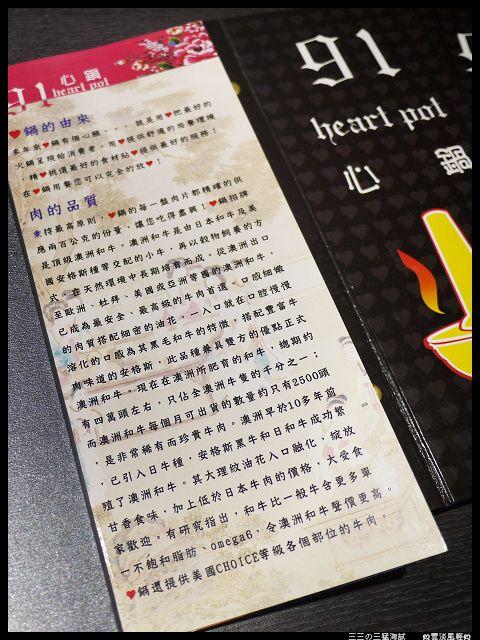 91 心鍋
heart pot
♥鍋的由來
多年來♥鍋有個心願...就是用♥把最好的
火鍋呈現給消費者,用♥提供舒適的用餐環境
,精♥挑選最好的食材給♥提供最好的服務!
在♥鍋用餐您可以完全的放♥!
肉的品質
秉持最高原則,♥鍋的每一盤肉片都精確的供
應兩百公克的份量,讓您吃得盡興!♥鍋招牌
是頂級澳洲和牛。澳洲和牛是由日本和牛及美
國安格斯種等交配的小牛,再以穀物飼養的方
式,在天然環境中長期培育而成。從澳洲出口
至歐洲、杜拜、美國或亞洲等國的澳洲和牛,
已成為最安全、最高級的牛肉首選。口感細緻
的肉質搭配細密的油花,一入口就在口腔慢慢
溶化的口感為其黑毛和牛的特徵,搭配豐富牛
肉味道的安格斯,此品種兼具雙方的優點正式
澳洲和牛。現在在澳洲所肥育的和牛,總期約
有四萬頭左右,只佔全澳洲牛隻的千分之一;
而澳洲和牛每個月可出貨的數量約只有2500頭
是非常稀有而珍貴牛肉。澳洲早於10多年前
,已引入日牛種,安格斯黑牛和日和牛成功繁
殖了澳洲和牛。其大理紋油花入口融化,綻放
甘香食味,加上低於日本牛肉的價格,大受食
家歡迎。有研究指出,和牛比一般牛含更多單
一不飽和脂肪、omega6,令澳洲和牛聲價更高。
♥鍋還提供美國CHOICE等級各個部位的牛肉。
91
heart pot
心鍋
三三の三猛海賊
@雲淡風輕@